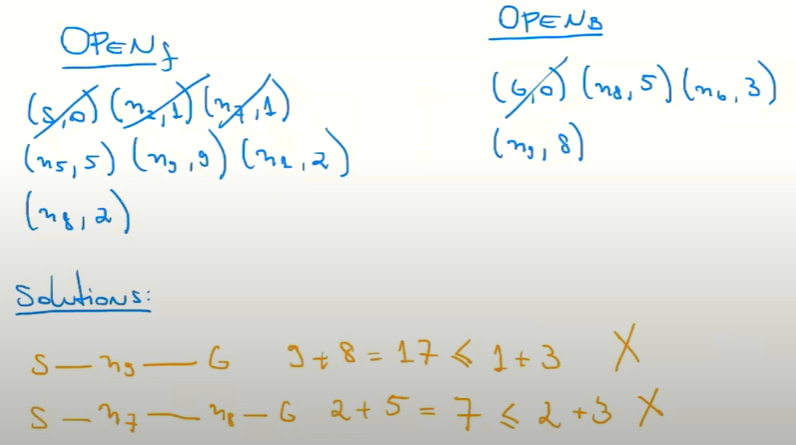 OPEN_f
(S,0) (n₂,1) (n₇,1)
(n₅,5) (n₉,9) (n₁,2)
(n₈,2)
OPEN_B
(G,0) (n₈,5) (n₆,3)
(n₉,8)
Solutions:
S — n₉ — G 9+8 = 17 ≤ 1+3 X
S — n₇ — n₈ — G 2+5 = 7 ≤ 2+3 X